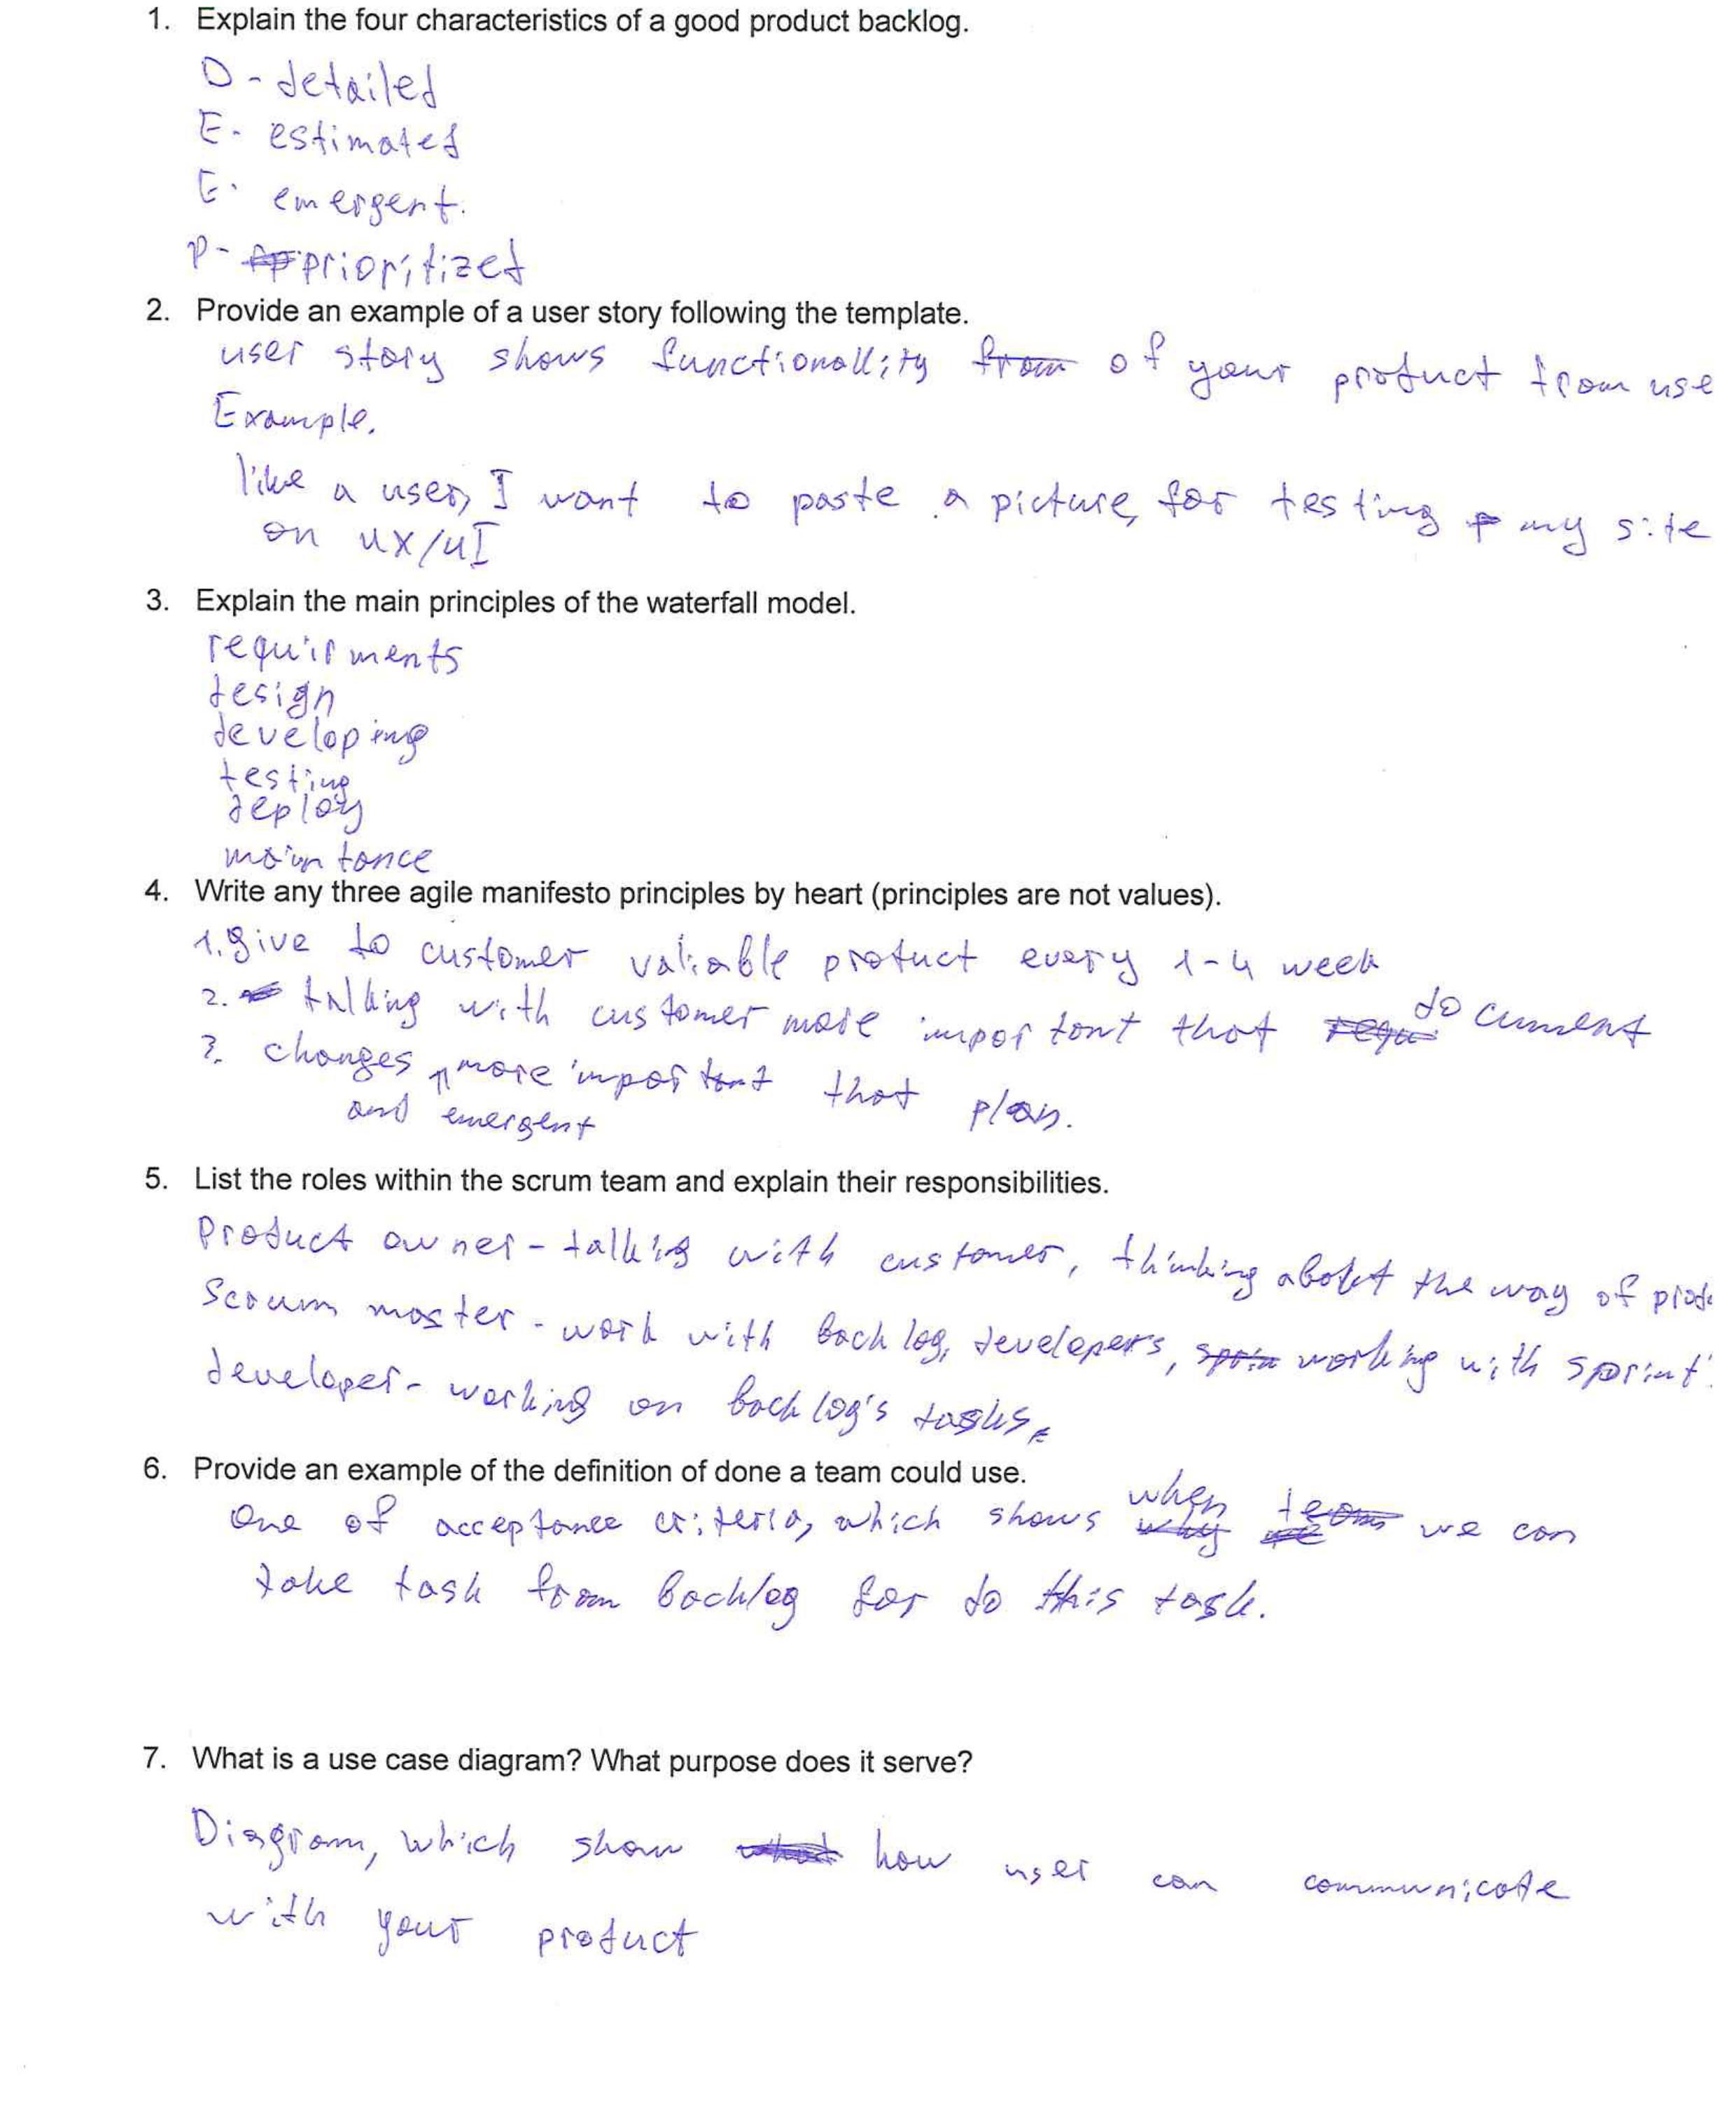 1. Explain the four characteristics of a good product backlog.
D - detailed
E - estimated
E - emergent.
P - prioritized
2. Provide an example of a user story following the template.
user story shows functionallity from of your product from use
Example.
like a user, I want to paste a picture, for testing my site
on UX/UI
3. Explain the main principles of the waterfall model.
requirments
design
developing
testing
deploy
maintance
4. Write any three agile manifesto principles by heart (principles are not values).
1. give to customer valiable product every 1-4 week
2. talking with customer more important that document
3. changes and emergent more important that plan.
5. List the roles within the scrum team and explain their responsibilities.
Product owner - talking with customer, thinking about the way of prod
Scrum master - work with backlog, developers, working with sprint.
developer - working on backlog's tasks.
6. Provide an example of the definition of done a team could use.
One of acceptance criteria, which shows when we can
take task from backlog for do this task.
7. What is a use case diagram? What purpose does it serve?
Diagram, which show how user can communicate
with your product